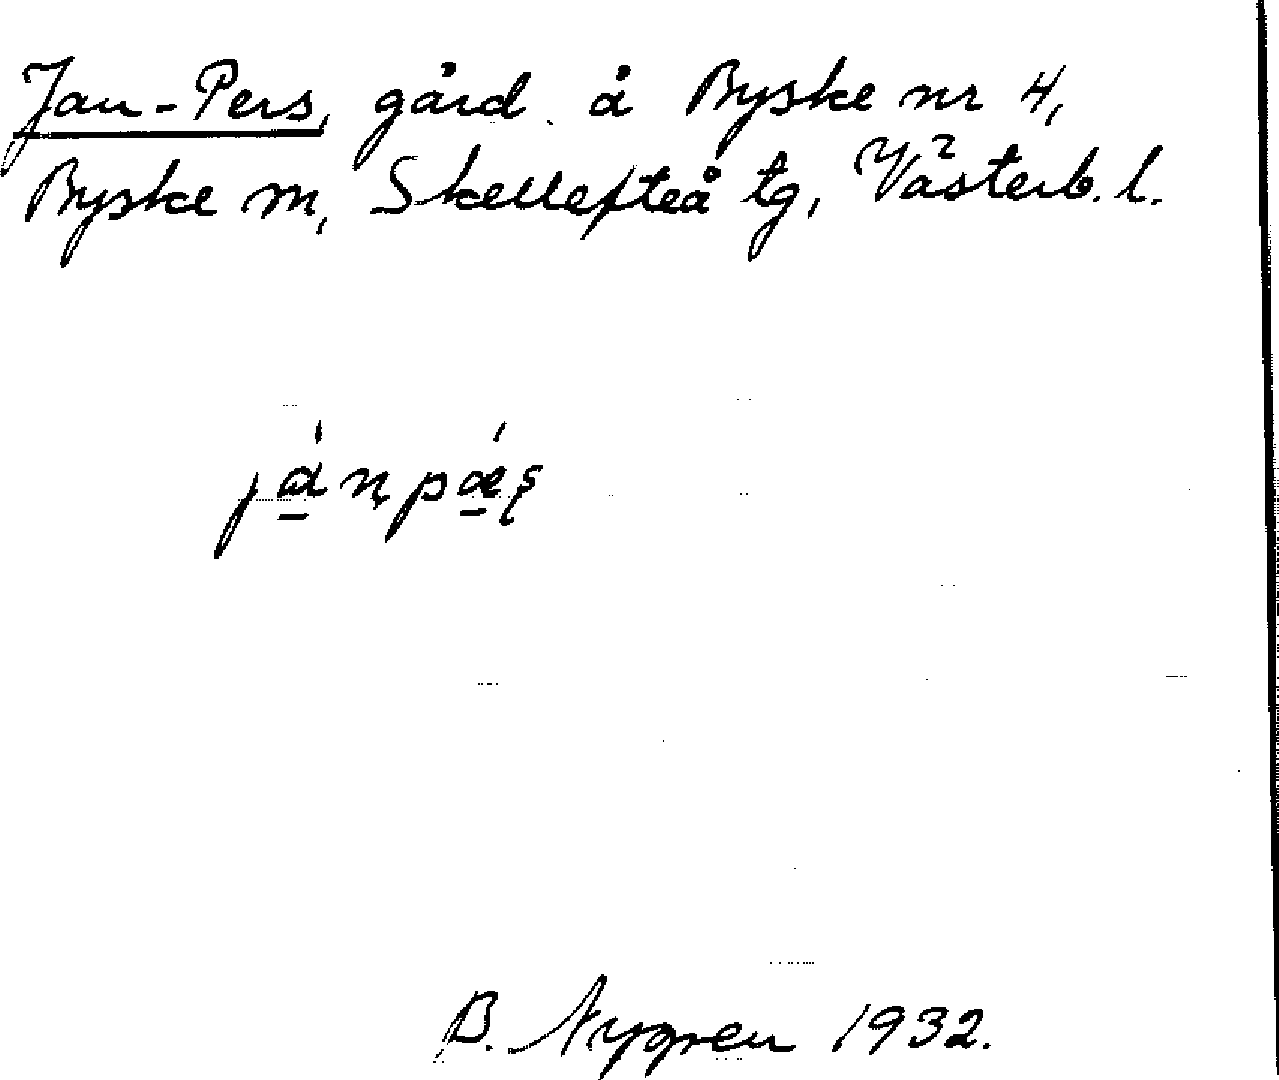 Jan-Pers, gård å Byske nr 4,
Byske m, Skellefteå tg, Västerb. l.
B. Nygren 1932.